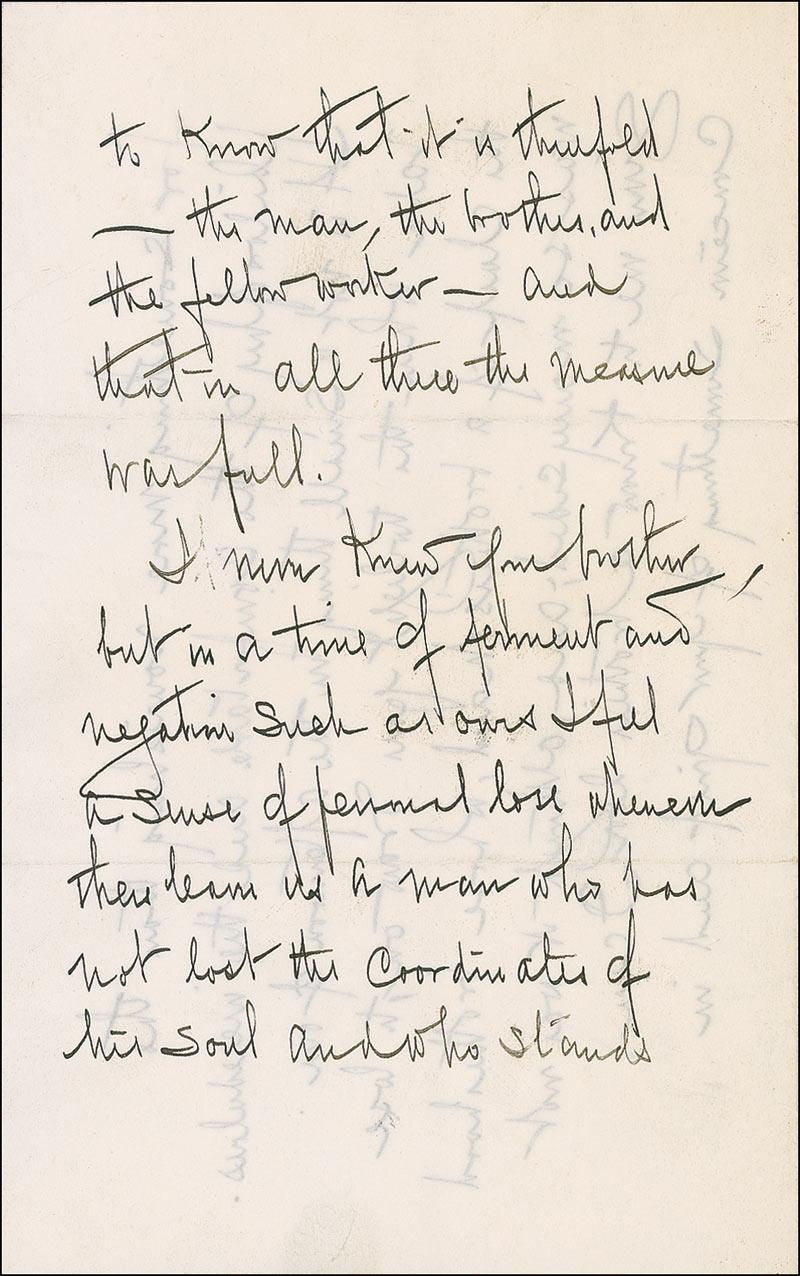 to know that it is threefold
— the man, the brother, and
the fellow worker — and
that in all three the measure
was full.
I never knew your brother,
but in a time of ferment and
negation such as ours I feel
a sense of personal loss whenever
there leaves us a man who has
not lost the coordinates of
his soul and who stands